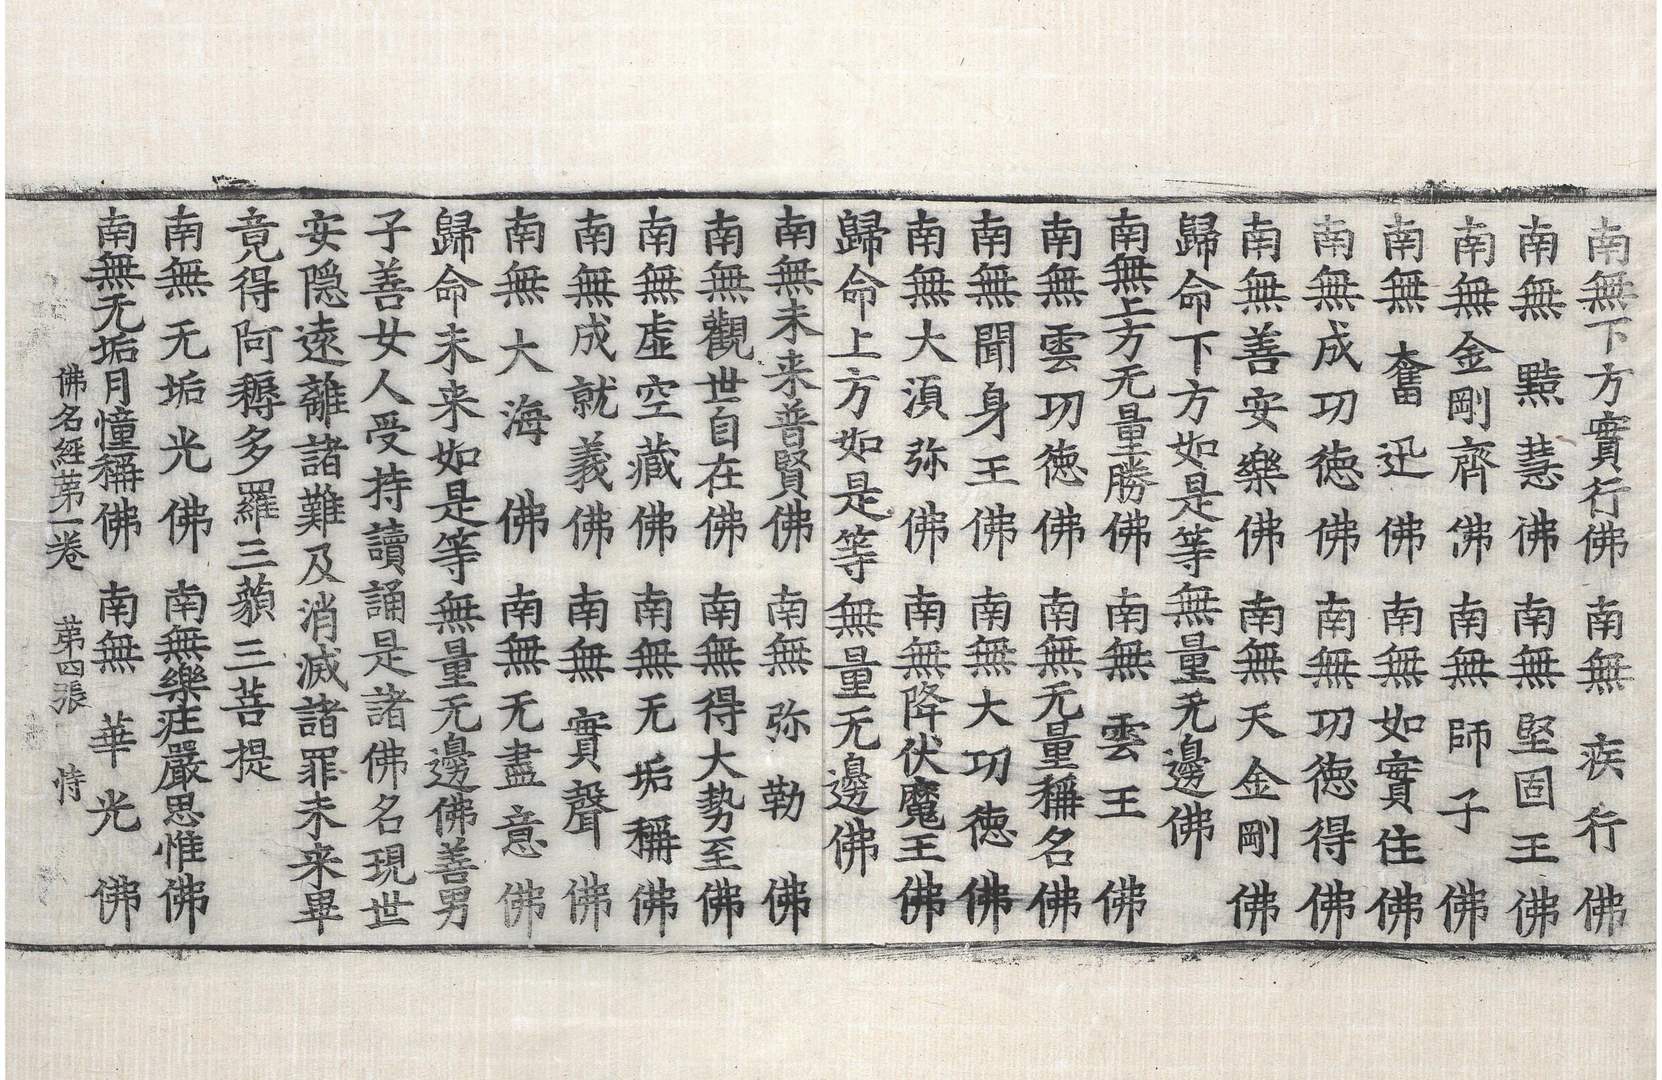 南無下方實行佛　南無疾行佛
南無黠慧佛　南無堅固王佛
南無金剛齊佛　南無師子佛
南無奮迅佛　南無如實住佛
南無成功德佛　南無功德得佛
南無善安樂佛　南無天金剛佛
歸命下方如是等無量无邊佛
南無上方无量勝佛　南無雲王佛
南無雲功德佛　南無无量稱名佛
南無聞身王佛　南無大功德佛
南無大湏弥佛　南無降伏魔王佛
歸命上方如是等無量无邊佛
南無未来普賢佛　南無弥勒佛
南無觀世自在佛　南無得大勢至佛
南無虛空藏佛　南無无垢稱佛
南無成就義佛　南無實聲佛
南無大海佛　南無无盡意佛
歸命未来如是等無量无邊佛善男
子善女人受持讀誦是諸佛名現世
安隱遠離諸難及消滅諸罪未来畢
竟得阿耨多羅三藐三菩提
南無无垢光佛　南無樂莊嚴思惟佛
南無无垢月幢稱佛　南無華光佛
佛名經第一卷　第四張　恃